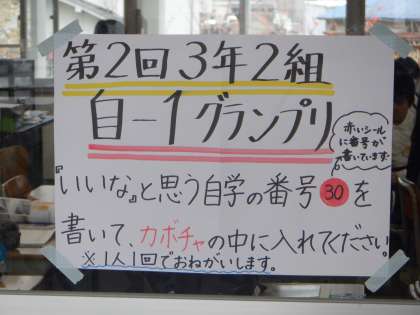 第2回3年2組
自-1グランプリ
赤いシール
に番号が
書いています。
『いいな』と思う自学の番号30を
書いて、カボチャの中に入れてください。
※1人1回でおねがいします。